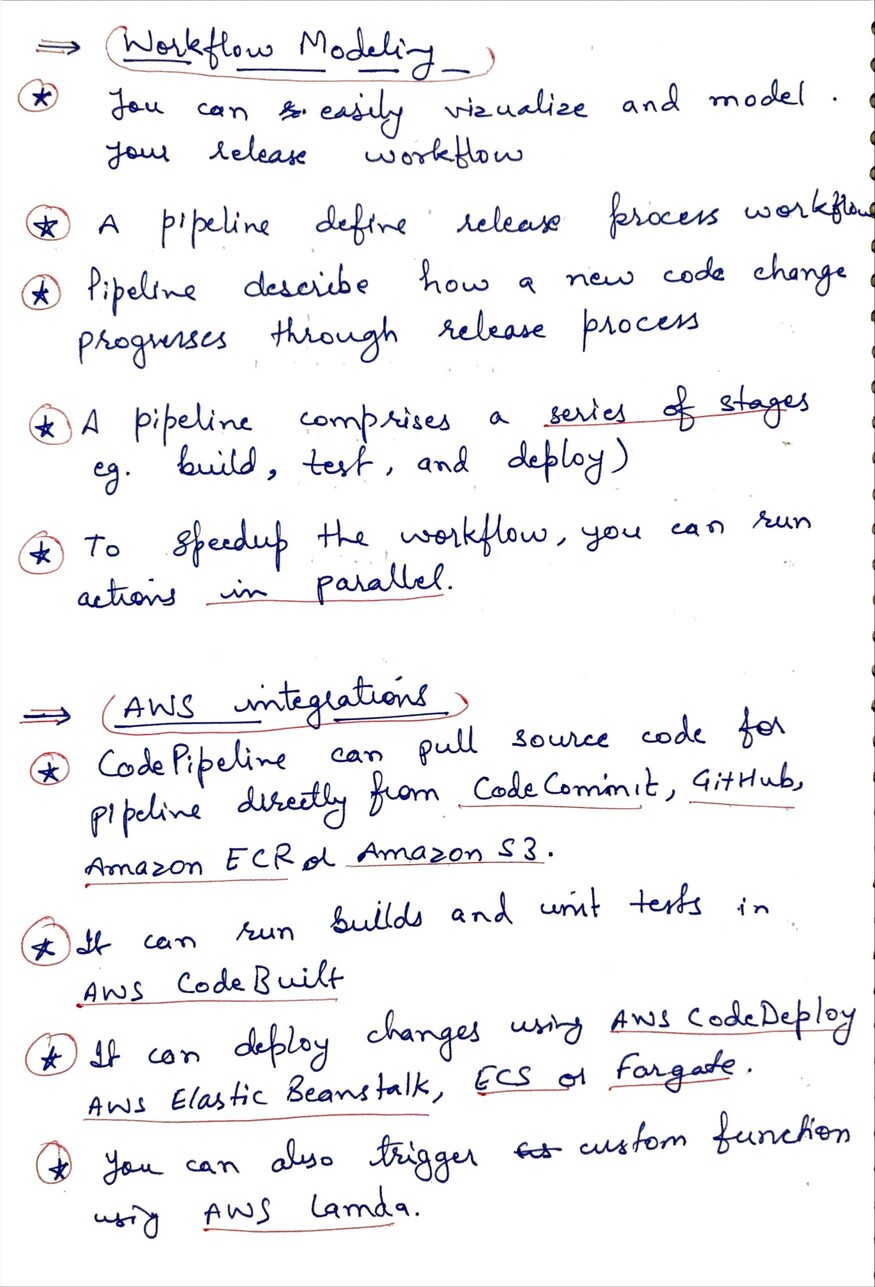 ⇒ Workflow Modeling
★ You can easily vizualize and model.
your release workflow
★ A pipeline define release process workflow
★ Pipeline describe how a new code change
progresses through release process
★ A pipeline comprises a series of stages
eg. build, test, and deploy)
★ To speedup the workflow, you can run
actions in parallel.
⇒ (AWS integrations)
★ CodePipeline can pull source code for
pipeline directly from CodeCommit, GitHub,
Amazon ECR or Amazon S3.
★ It can run builds and unit tests in
AWS CodeBuilt
★ It can deploy changes using AWS CodeDeploy
AWS Elastic Beanstalk, ECS or Fargate.
★ You can also trigger custom function
using AWS Lamda.